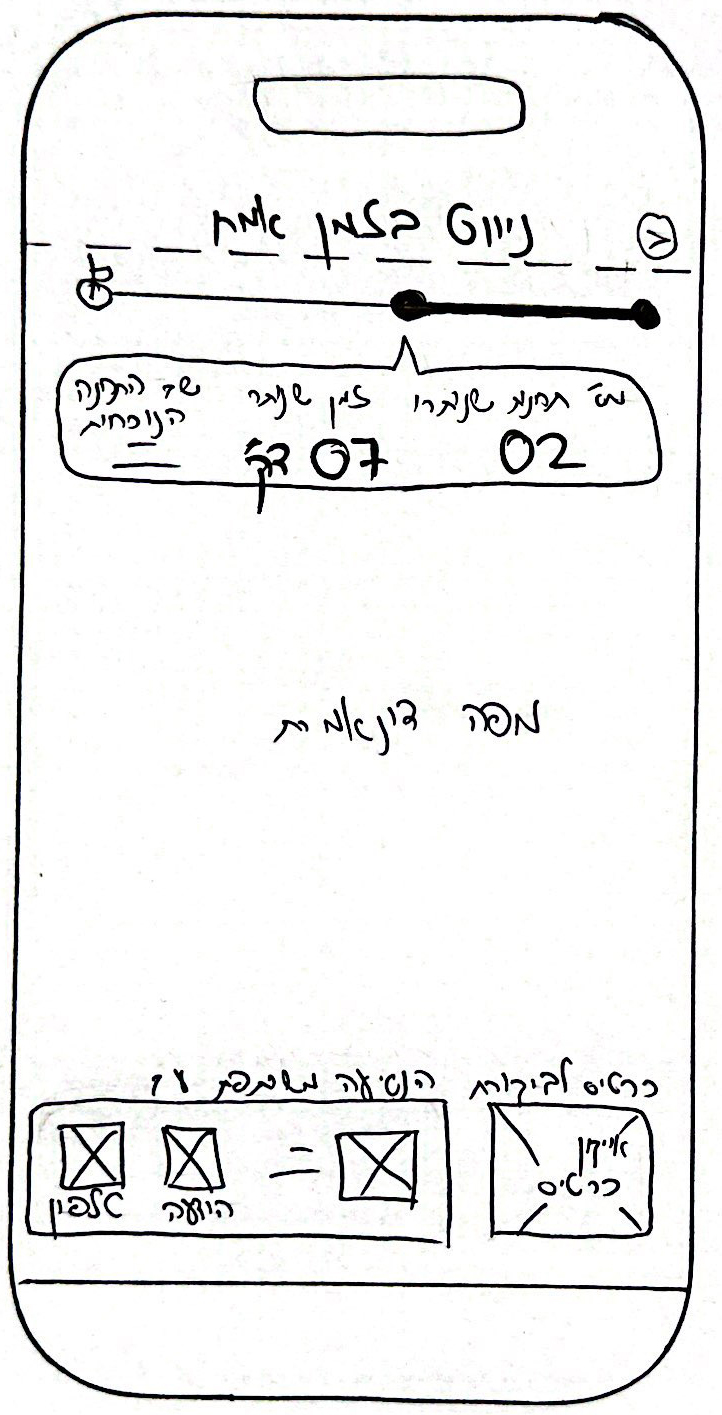 ניווט בזמן אמת
מס' תחנות שנותרו
02
זמן שנותר
07 דק'
שם התחנה
הנוכחית
מפה דינאמית
כרטיס לביקורת
אייקון
כרטיס
הנסיעה משותפת עד
הודעה
טלפון